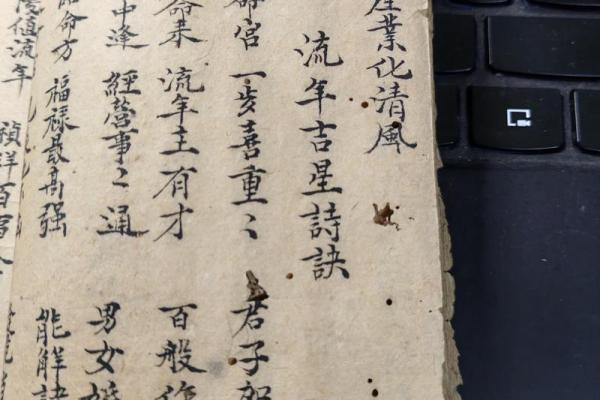 產業化清風
流年吉星詩訣
宮一步喜重〻 君子
命來流年主有才 百般
中逢經營事〻通 男女
命方福祿最高強 能解
值流年 禎祥百